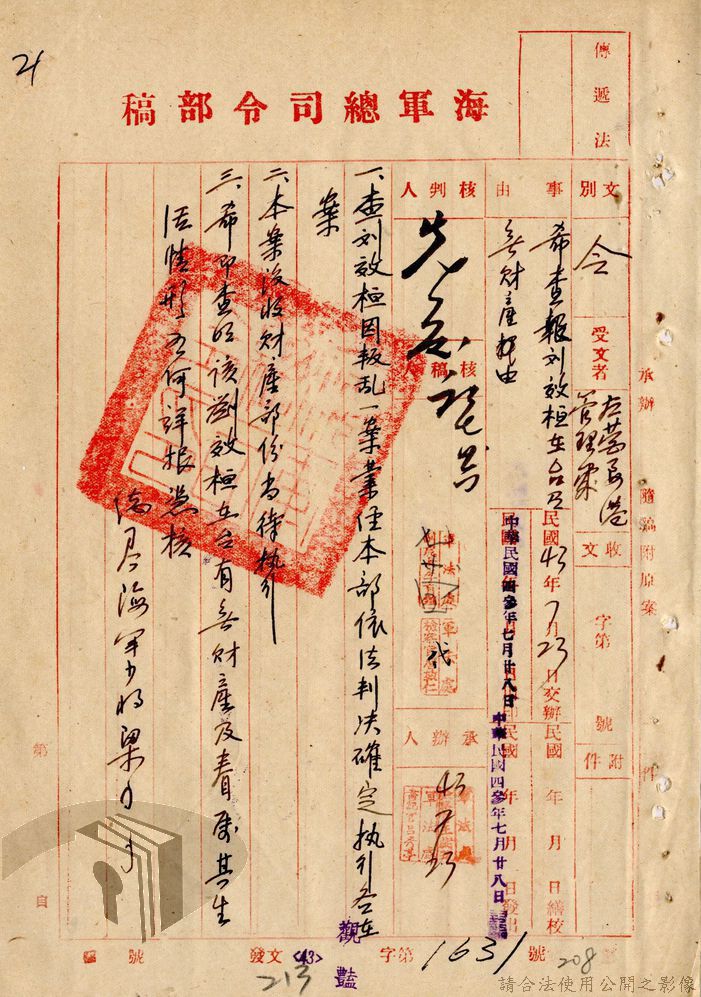 21
海軍總司令部稿
傳遞法
文別
令
受文者
左營軍港
管理處
收文
字第
號
附件
事由
希查報刘效桓在台有
無財產報由
民國43年7月23日交辦
民國 年 月 日繕校
中華民國四參年七月廿八日
中華民國四參年七月廿八日
核判人
核稿人
代
承辦人
43
7/23
一、查刘效桓因叛乱一案業經本部依法判决確定执行各在
案
二、本案没收財產部份尚待执行
三、希即查明該劉效桓在台有無財產及眷屬其生
活情形如何詳報憑核
海軍少將梁
承辦
隨稿附原案
件
第
自
號
發文
(43)
213
字第
觀豔
1631
號
208
請合法使用公開之影像